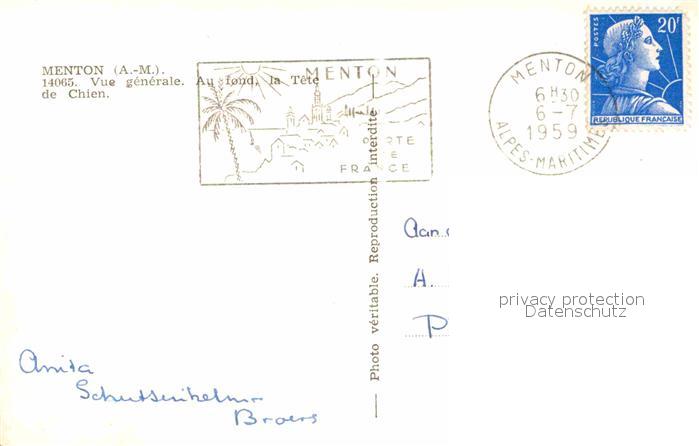 MENTON (A.-M.).
14065. Vue générale. Au fond, la Tête
de Chien.
MENTON
PORTE
DE
FRANCE
MENTON
6H30
6-7
1959
ALPES-MARITIMES
POSTES
20F
REPUBLIQUE FRANÇAISE
Photo véritable. Reproduction interdite
Aan
A.
P
privacy protection
Datenschutz
Anita
Broers